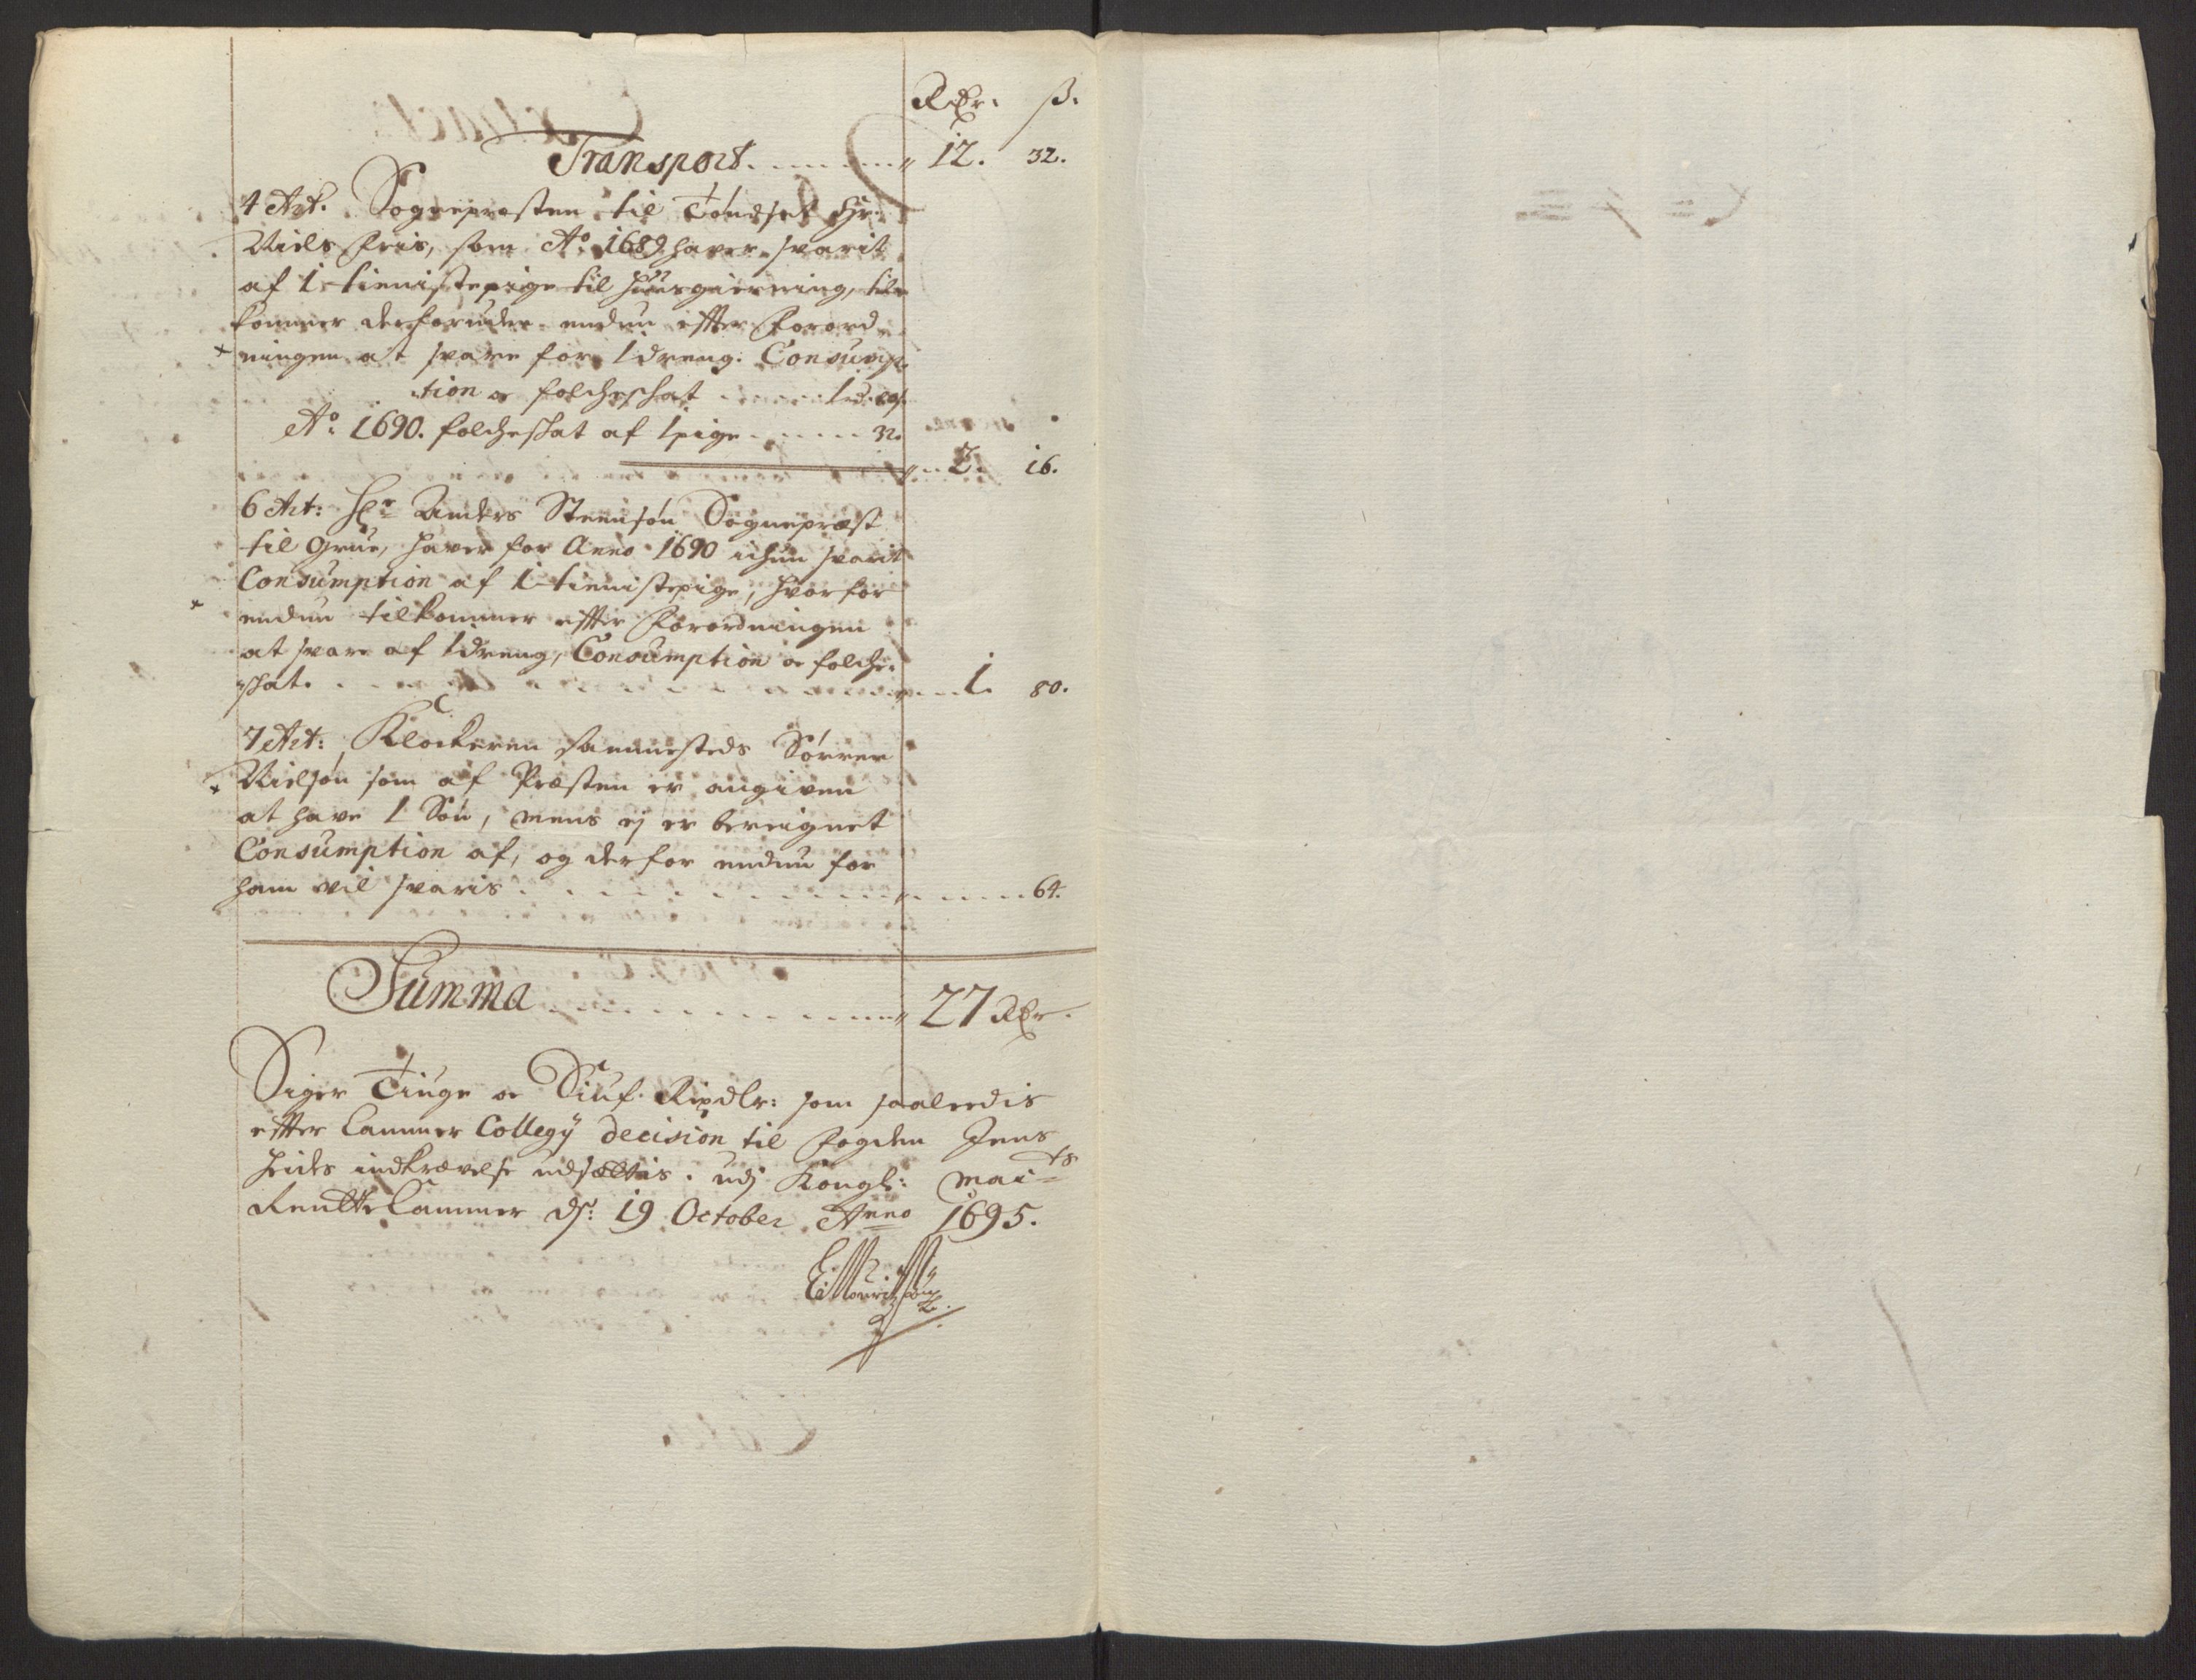 Rdr. ß.
Transport . . . . . 12. 32.
4 Art. Sognepresten til Tøndset Hr.
Niels Friis, som Ao. 1689 haver svarit
af 1 tienistepige til huusgierning, til-
kommer derforuden endnu effter Forord-
ningen at svare for 1 dreng. Consump-
tion oc folcheschat . . . . 1 rd. 80 ß.
Ao. 1690. folcheschat af 1 pige . . . . . 32.
. . 2. 16.
6 Art: Hr. Anders Steensøn Sognepræst
til Grue, haver for Anno 1690 ichun svarit
Consumption af 1 tienistepige, hvorfor
endnu tilkommer effter Forordningen
at svare af 1 dreng, Consumption oc folche-
schat. . . . . . 1. 80.
7 Art: Klockeren sammesteds Sørren
Nielsøn som af Præsten er angiven
at have 1 Søn, mens ej er bereignet
Consumption af, og derfor endnu for
ham vil svaris . . . . . . 64.
Summa . . . . . . 27 Rdr.
Siger Tiuge oc Siuf. Rixdlr: som saaledis
effter Cammer Collegij decision til Fogden Jens
Heides indkrævelse udsættis. udj Kongl: Maits
Rentte Cammer ds: 19 October Anno 1695.
E: Mouritzsøn